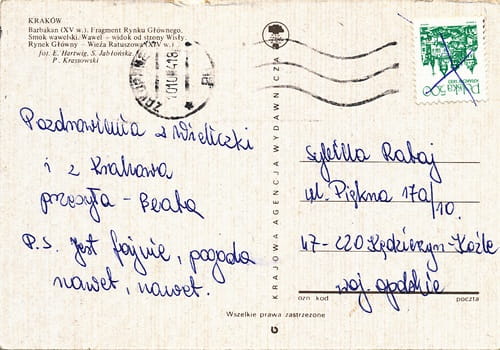 KRAKÓW
Barbakan (XV w.). Fragment Rynku Głównego.
Smok wawelski. Wawel – widok od strony Wisły.
Rynek Główny – Wieża Ratuszowa (XIV w.)
fot. E. Hartwig, S. Jabłońska,
P. Krassowski
Pozdrowienia z Wieliczki
i z Krakowa
przesyła – Beata
P.S. Jest fajnie, pogoda
nawet, nawet.
KRAJOWA AGENCJA WYDAWNICZA
Polska 500
Sybilla Rabaj
ul. Piękna 17a/10.
47-220 Kędzierzyn-Koźle
woj. opolskie
ozn kod
poczta
Wszelkie prawa zastrzeżone